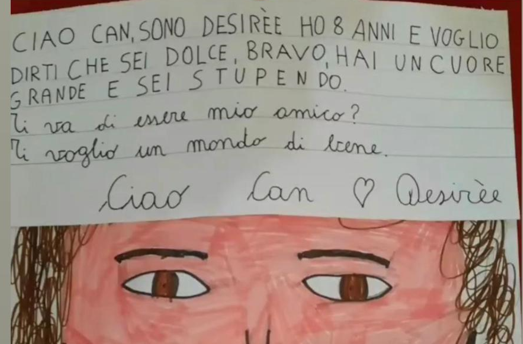 CIAO CAN, SONO DESIRÈE HO 8 ANNI E VOGLIO
DIRTI CHE SEI DOLCE, BRAVO, HAI UN CUORE
GRANDE E SEI STUPENDO.
Ti va di essere mio amico?
Ti voglio un mondo di bene.
Ciao Can ♡ Desirèe